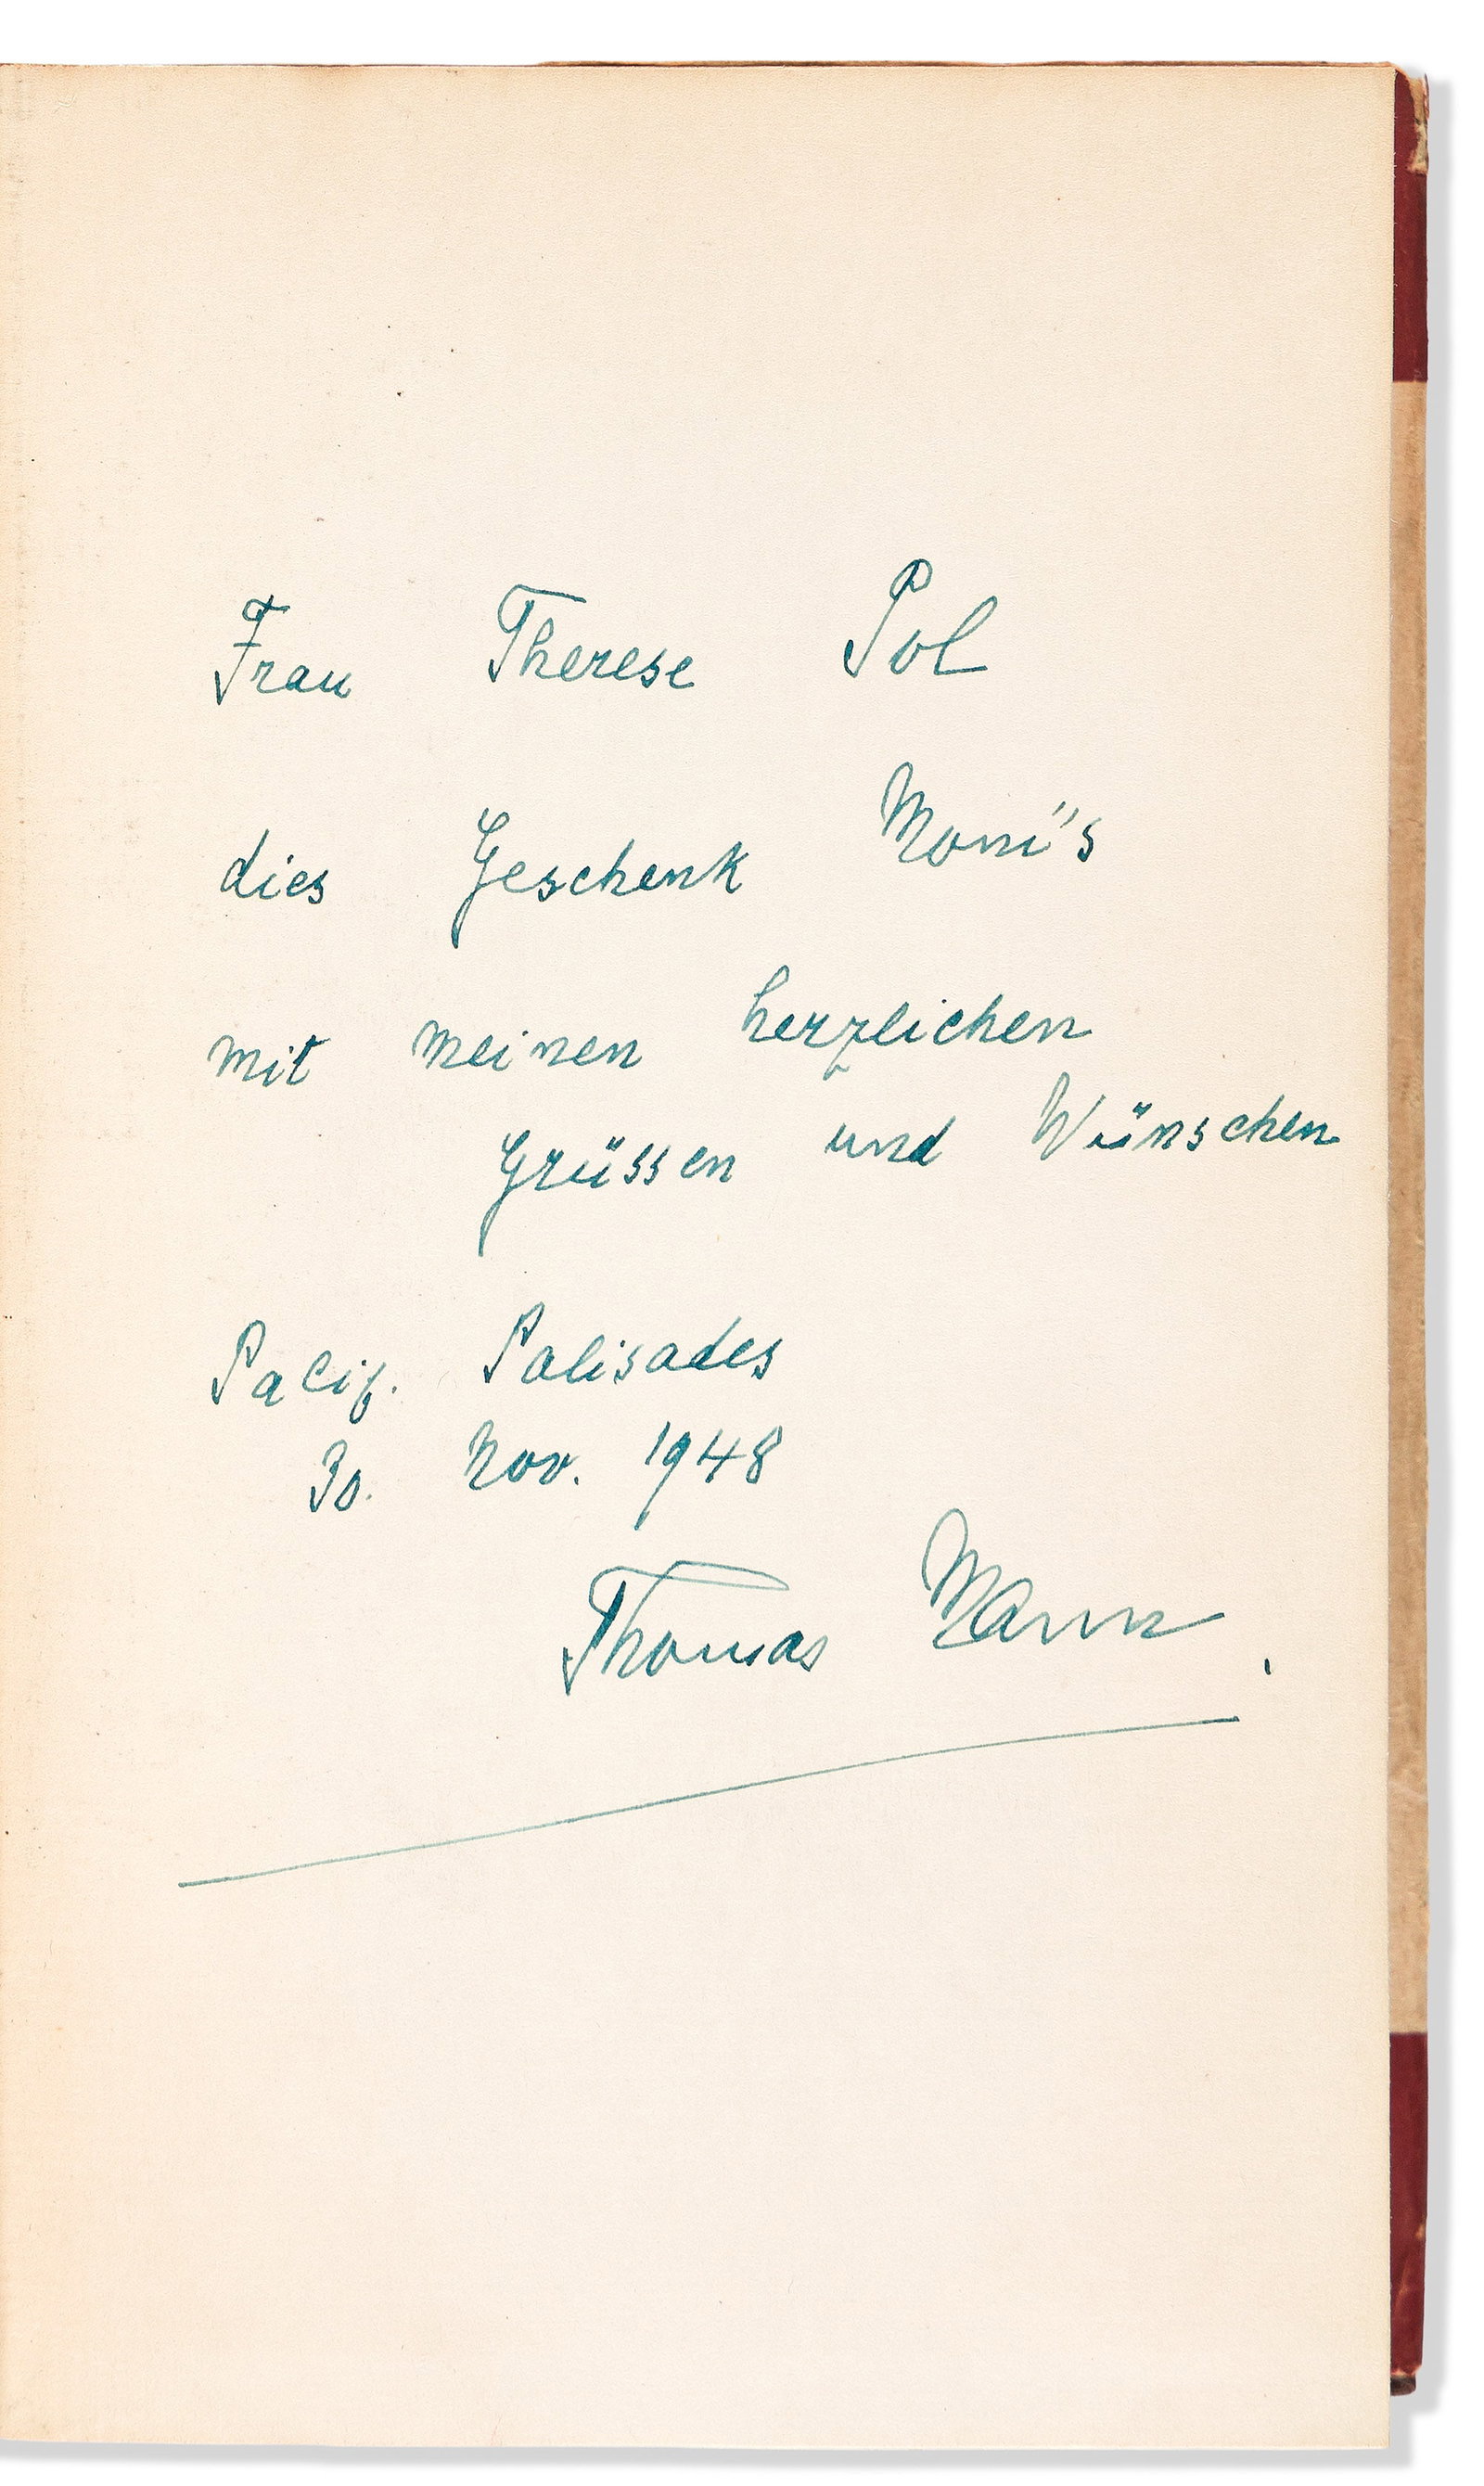 Frau Therese Pol
dies Geschenk Moni's
mit meinen herzlichen
Grüssen und Wünschen
Pacif. Palisades
30. Nov. 1948
Thomas Mann